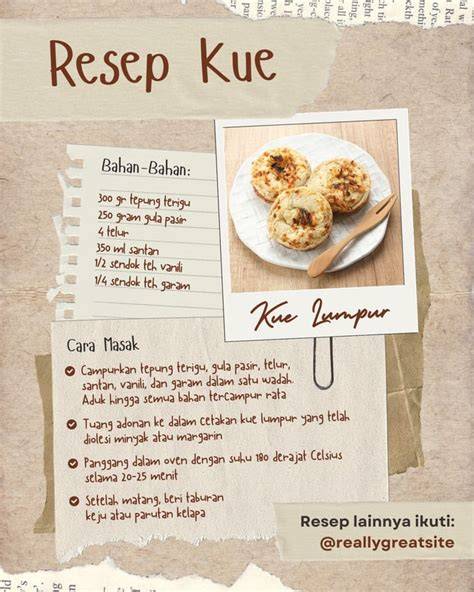 Resep Kue
Bahan-Bahan:
300 gr tepung terigu
250 gram gula pasir
4 telur
350 ml santan
1/2 sendok teh vanili
1/4 sendok teh garam
Kue Lumpur
Cara Masak
Campurkan tepung terigu, gula pasir, telur,
santan, vanili, dan garam dalam satu wadah.
Aduk hingga semua bahan tercampur rata
Tuang adonan ke dalam cetakan kue lumpur yang telah
diolesi minyak atau margarin
Panggang dalam oven dengan suhu 180 derajat Celsius
selama 20-25 menit
Setelah matang, beri taburan
keju atau parutan kelapa
Resep lainnya ikuti:
@reallygreatsite